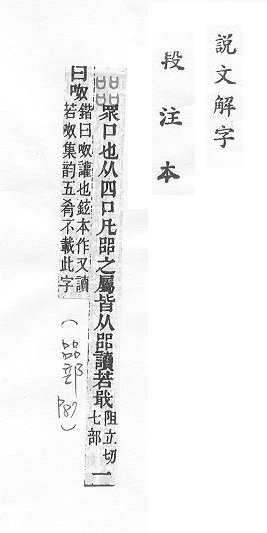 說文解字
段注本
㗊 眾口也从四口凡㗊之屬皆从㗊讀若戢 阻立切
七部
一
曰呶 鍇曰呶讙也鉉本作又讀
若呶集韵五肴不載此字
(㗊部 P87)